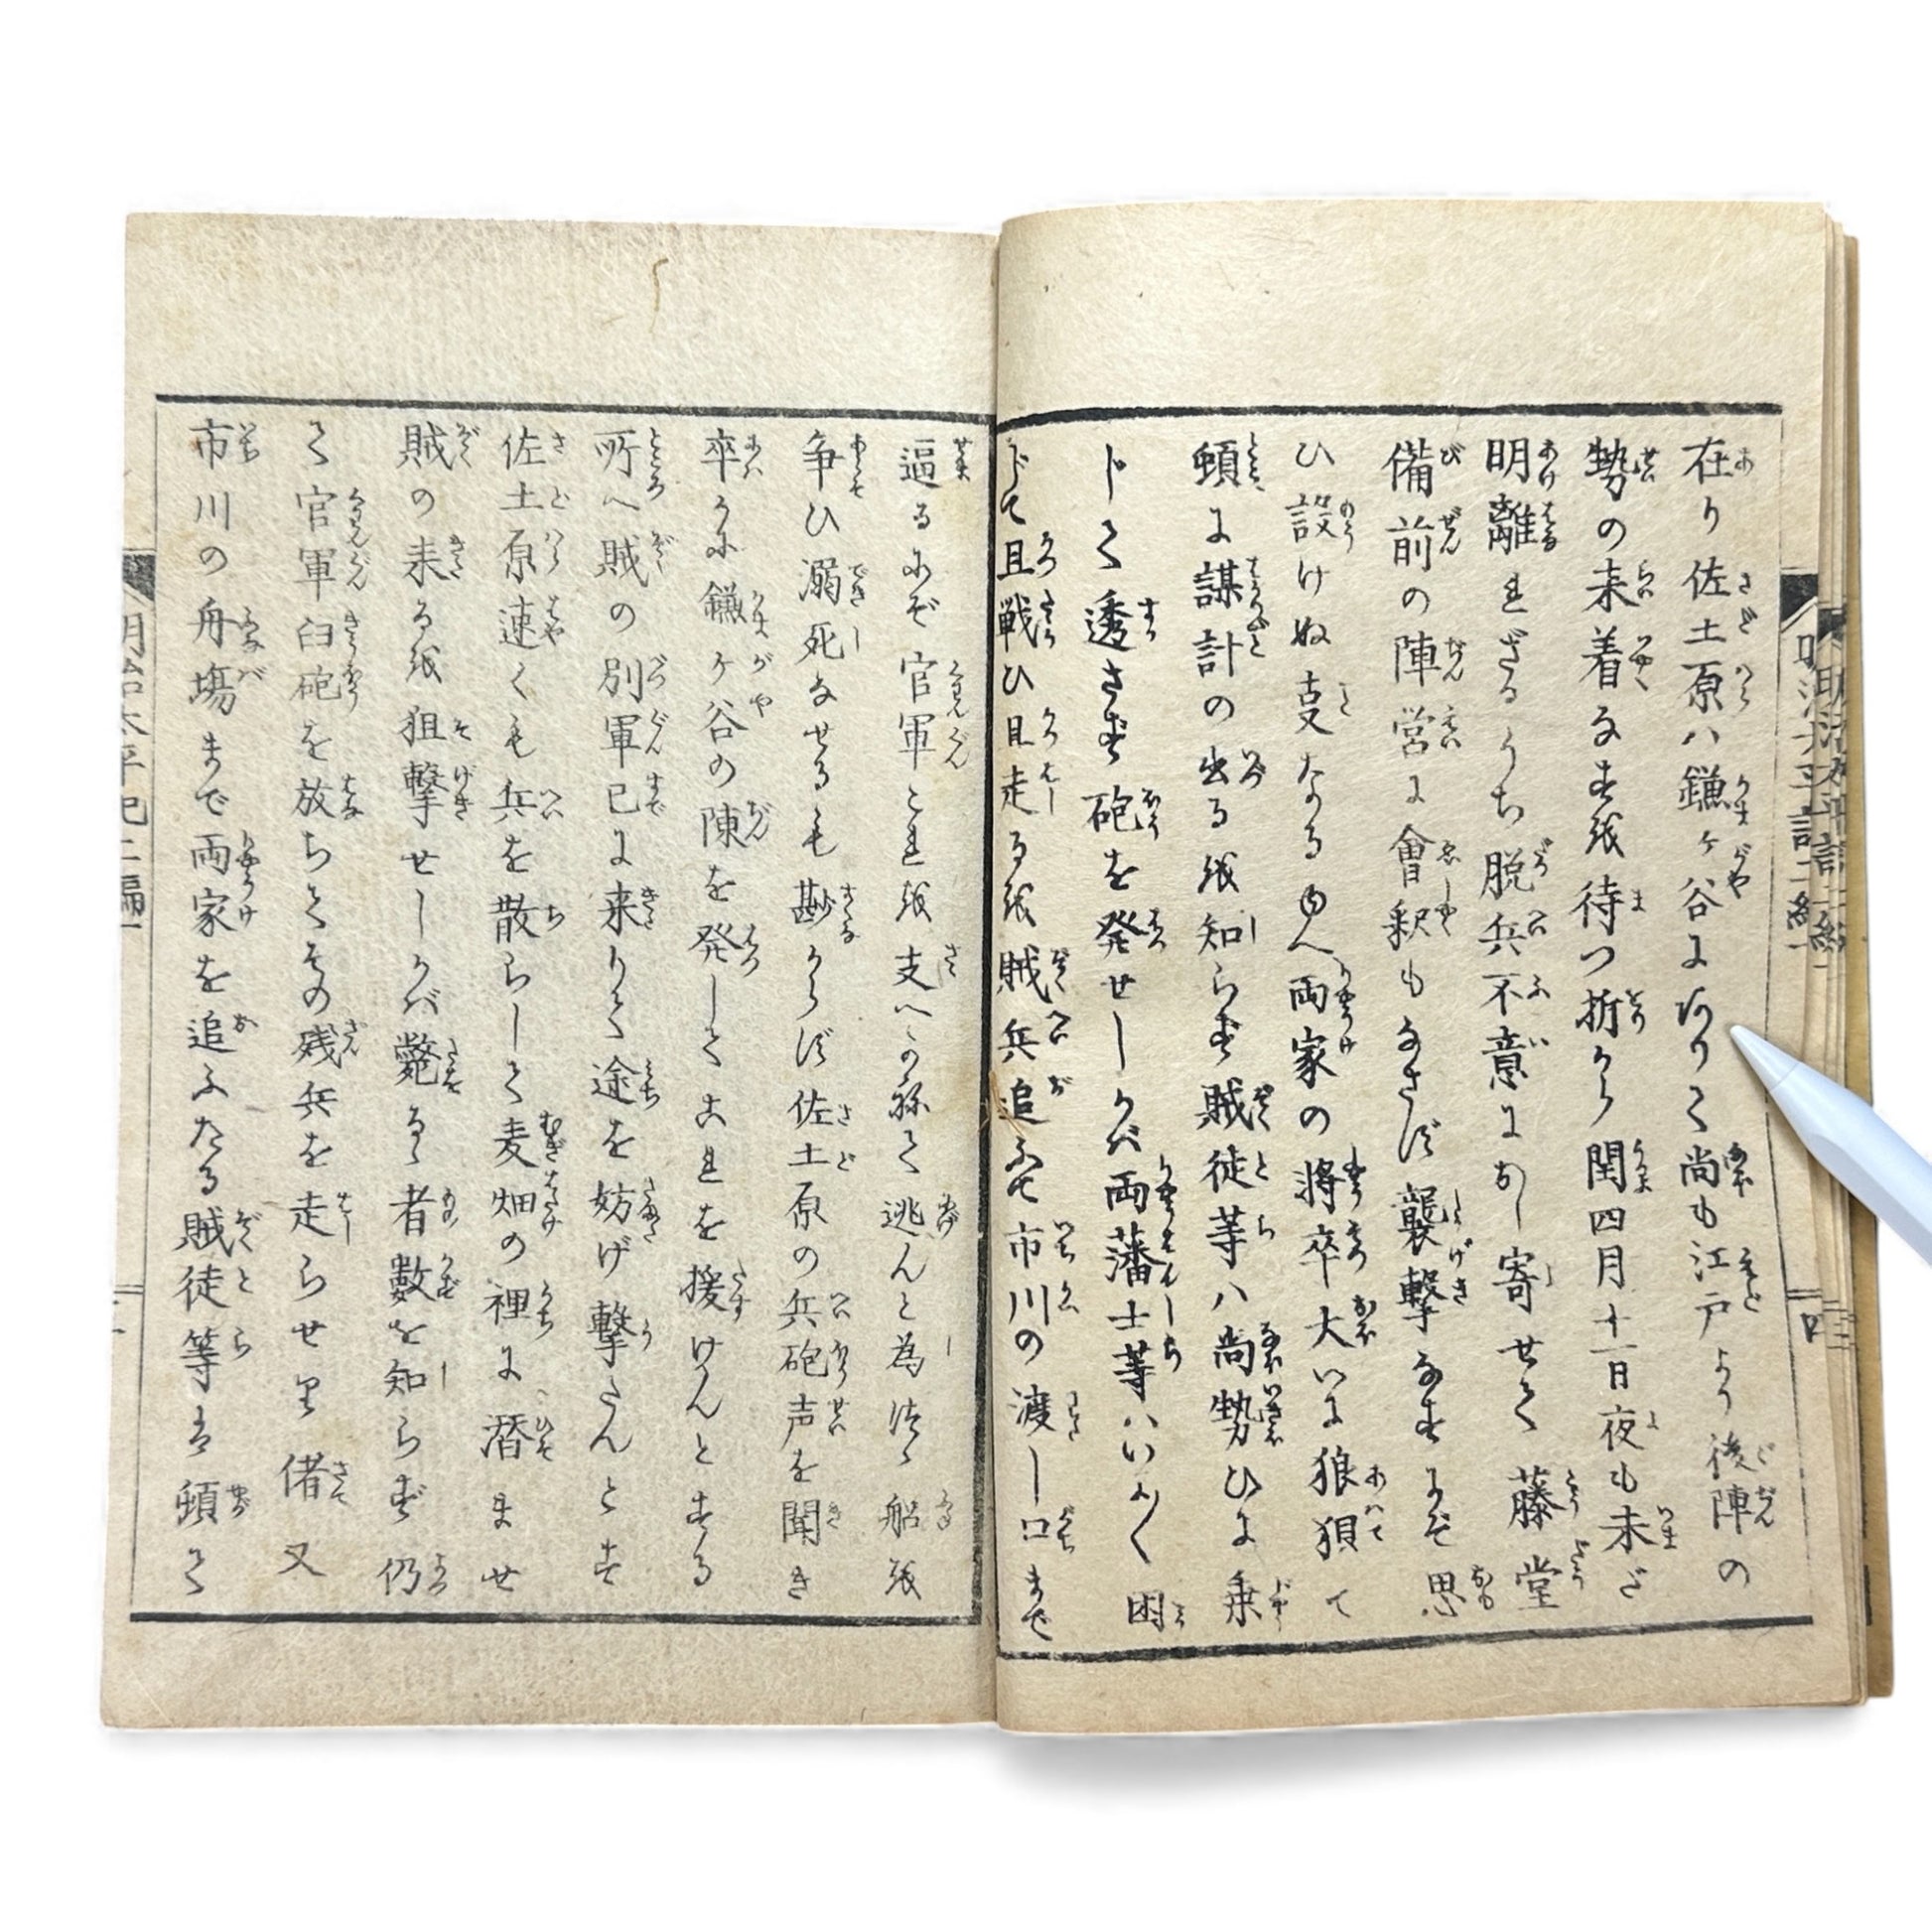 在り佐土原ハ鎌ヶ谷に阿りて尚も江戸より後陣の
勢の来着なすを待つ折から閏四月十一日夜も未ざ
明離れざるうち脱兵不意におし寄せて藤堂
備前の陣営に會釈もなさず襲撃なすにぞ思
ひ設けぬ㕝なるゆへ両家の將卒大いに狼狽て
頓に謀計の出るを知らず賊徒等ハ尚勢ひに乗
じて透さず砲を発せしかバ両藩士等ハいたく困
じて且戦ひ且走るを賊兵追ふて市川の渡し口まで
逼るにぞ官軍これを支へかねて逃んと為つゝ船を
争ひ溺死なせるも尠からず佐土原の兵砲声を聞き
卒かに鎌ヶ谷の陳を発してこれを援けんとする
所へ賊の別軍已に来りて途を妨げ撃たんとす
佐土原速くも兵を散らして麦畑の裡に潜ませ
賊の来るを狙撃せしかバ斃るゝ者數を知らず仍
て官軍臼砲を放ちてその残兵を走らせり偖又
市川の舟塲まで両家を追ふたる賊徒等は頓て
明治太平記二編一